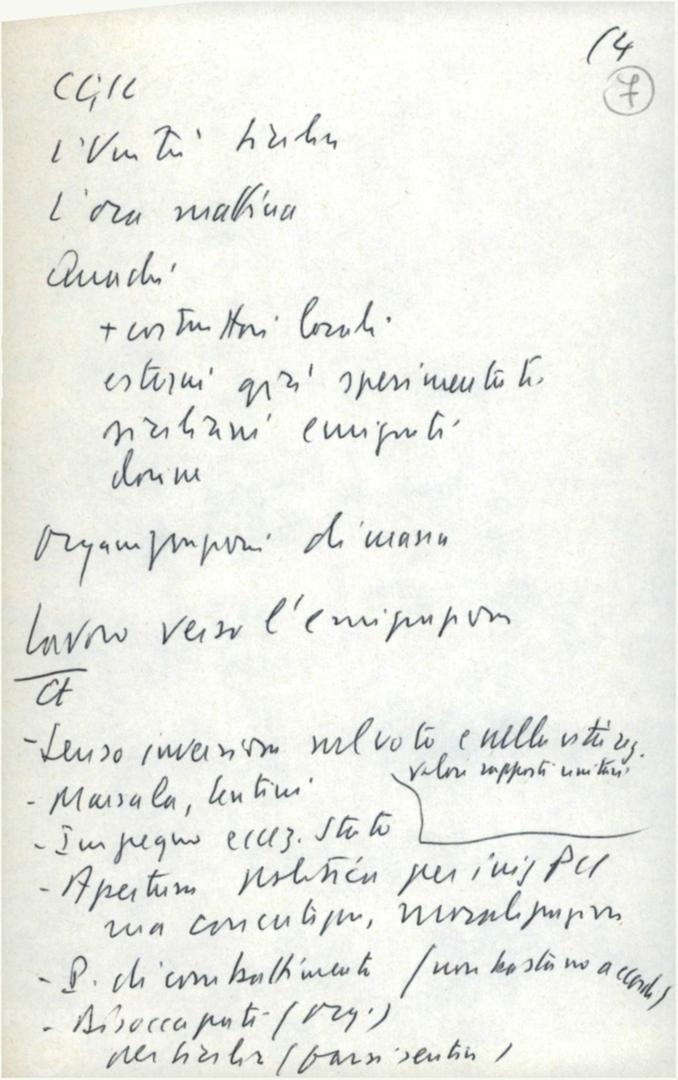 14
7
CGIL
L'Unità Sicilia
L'ora mattina
Quadri
+ costruttori locali
esterni già sperimentati
siciliani emigrati
donne
Organizzazioni di massa
Lavoro verso l'emigrazione
Ct
- Senso inversione nel voto e nelle reg.
valori rapporti unitari
- Marsala, Lentini
- Impegno eccez. Stato
- Apertura politica per iniz PCI
ma concretizz, moralizzazione
- P. di combattimento (non bastano accordi)
- Disoccupati (org.)
per Sicilia (farsi sentire)